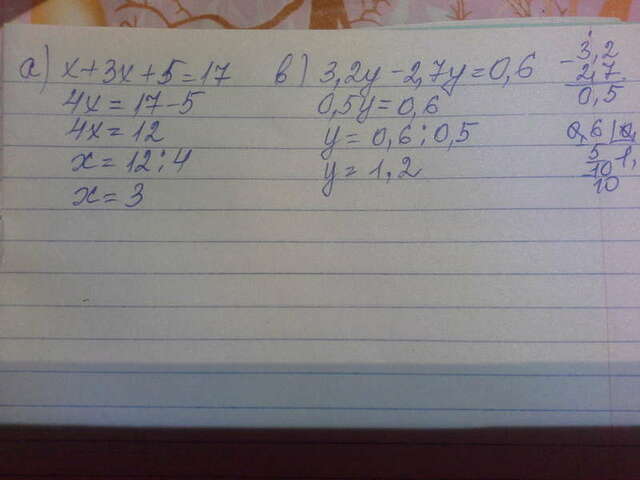 а) x+3x+5=17
4x=17-5
4x=12
x=12:4
x=3
в) 3,2y-2,7y=0,6
0,5y=0,6
y=0,6:0,5
y=1,2
- 3,2
2,7
0,5
0,6
5
10
10
1,